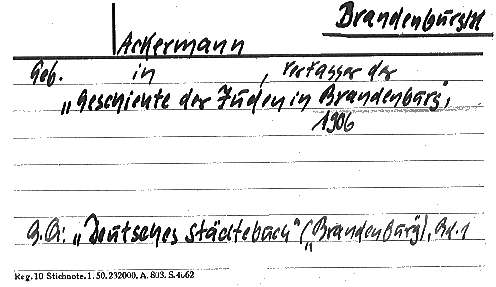 Brandenburg/H
Ackermann
Geb. in , Verfasser der
„Geschichte der Juden in Brandenburg,
1906
"Deutsches Städtebuch" („Brandenburg), Bd. 1
Reg. 10 Stichnote. 1. 50. 232000. A. 803. S. 4662